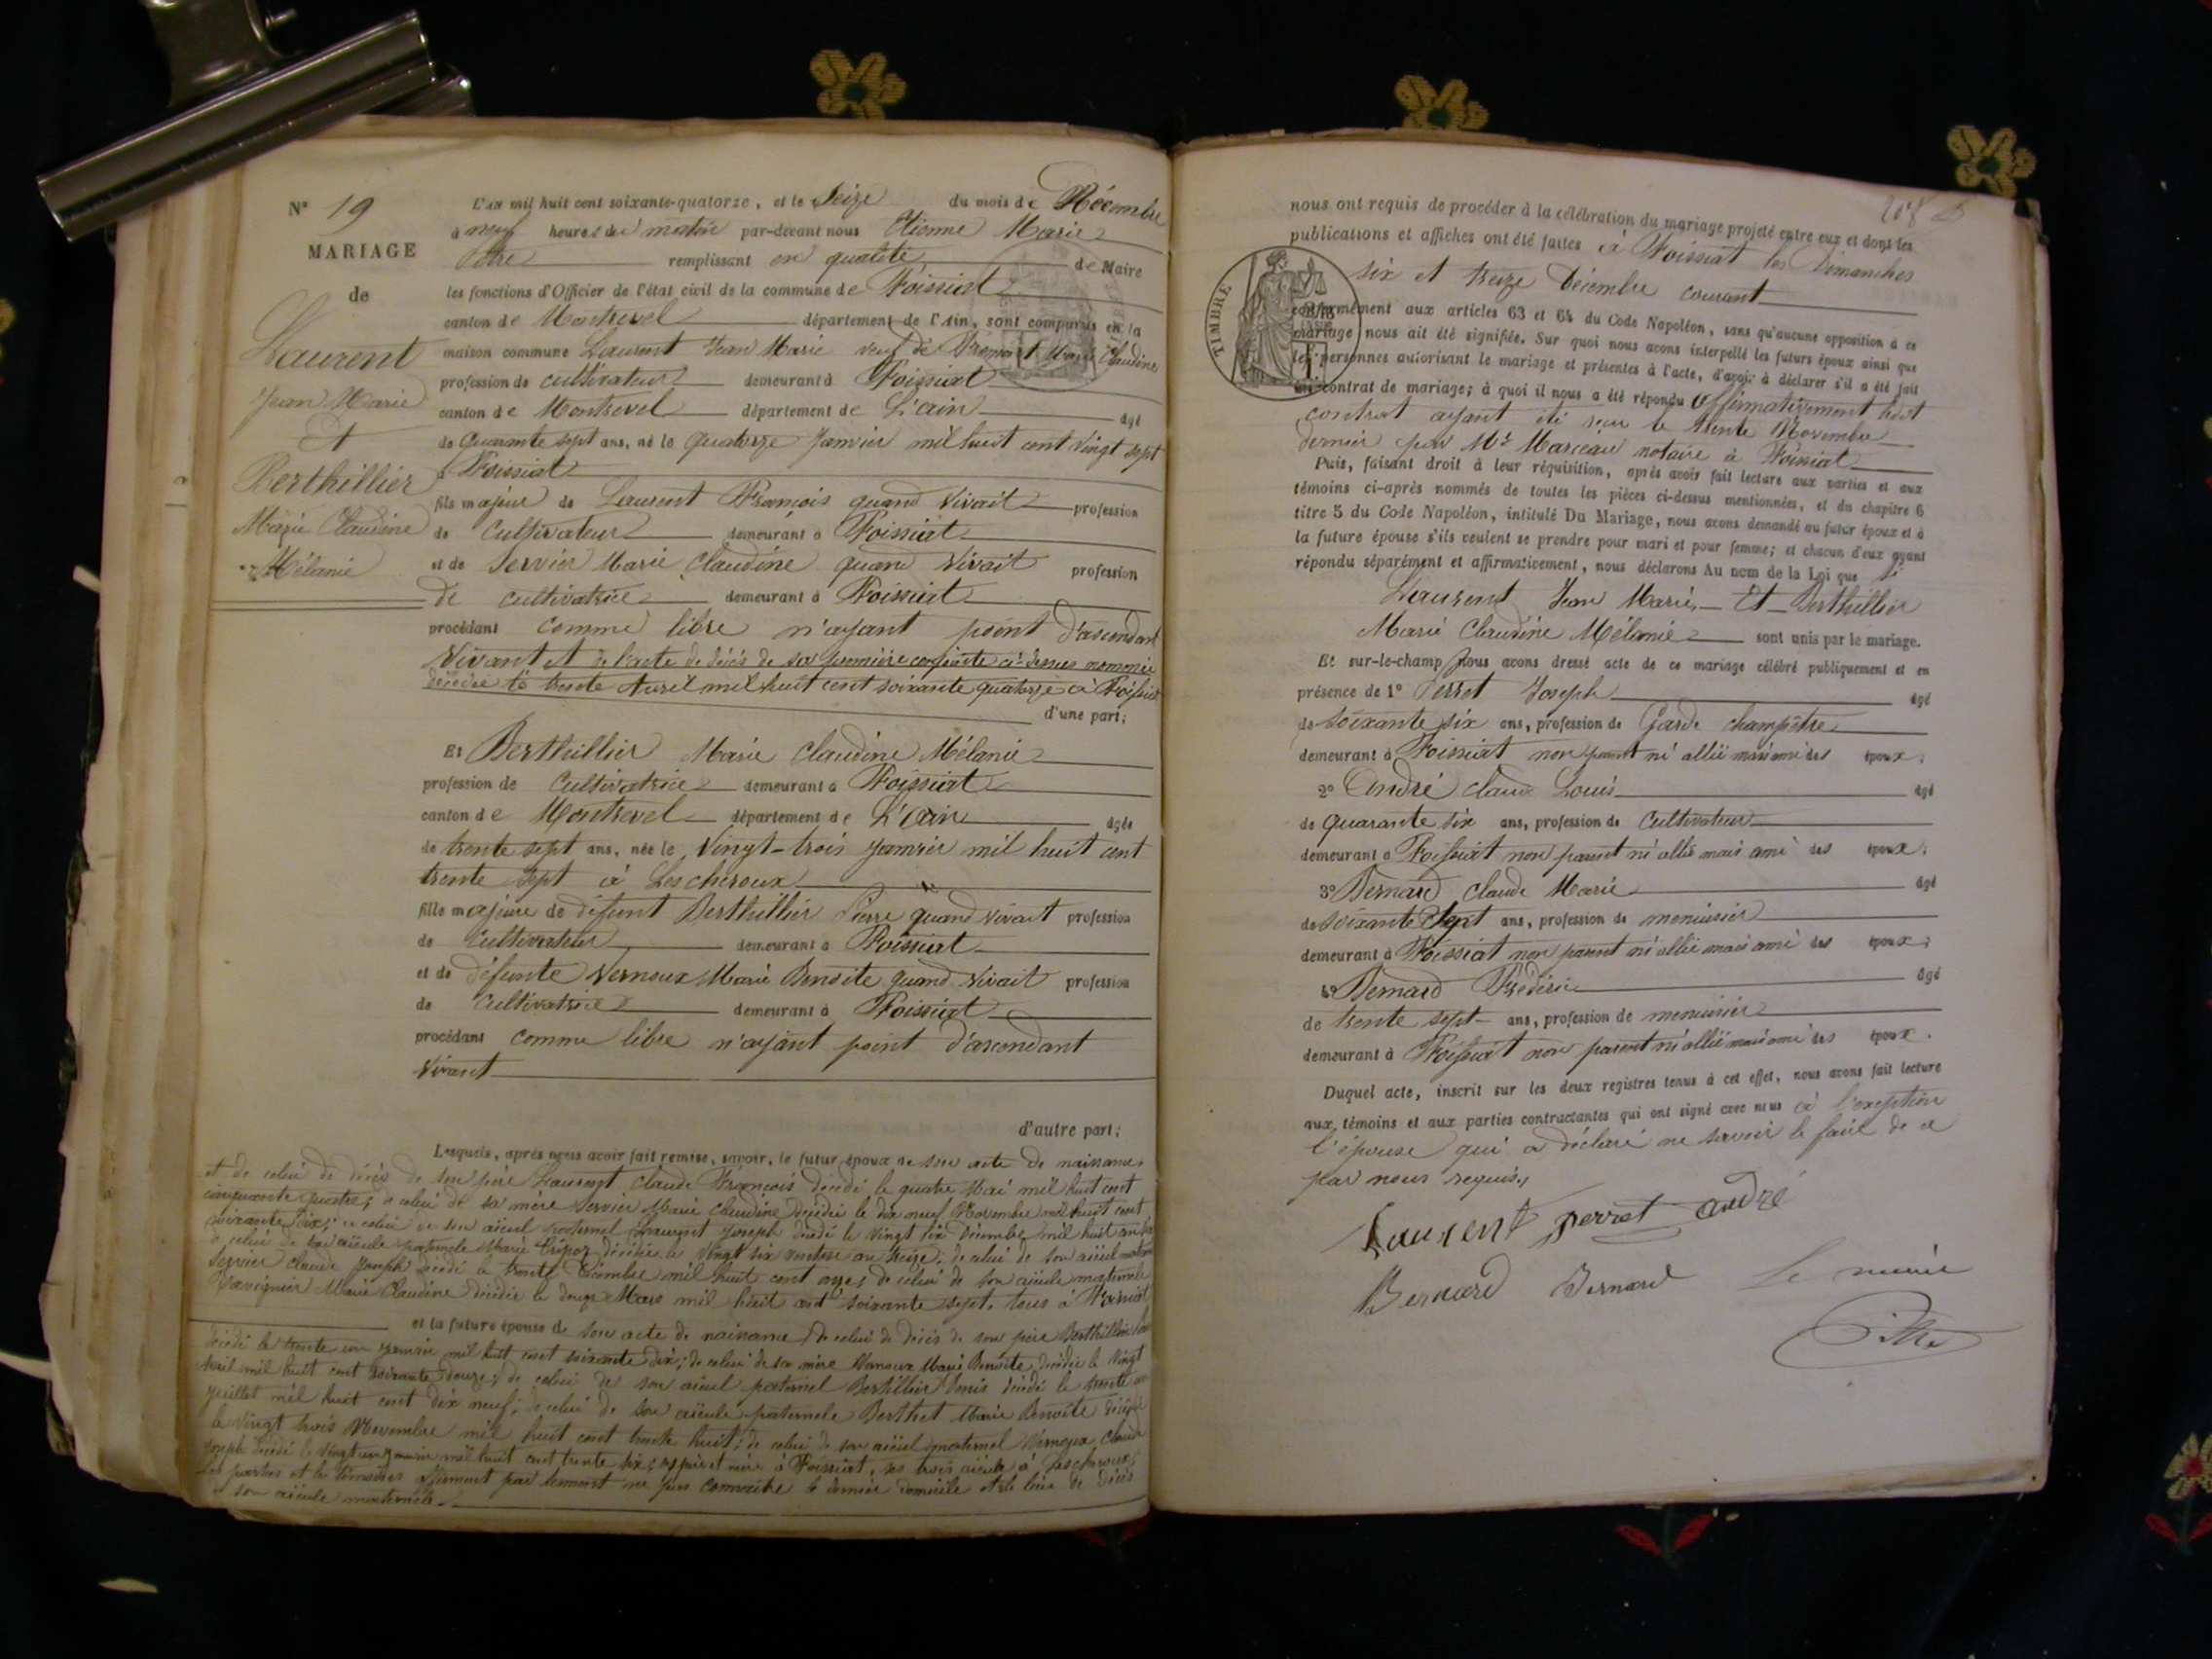 N° 19
MARIAGE
de
Laurent
Jean Marie
Et
Berthillier
Marie Claudine
Mélanie
L'an mil huit cent soixante-quatorze, et le Seize du mois de Décembre
à neuf heures du matin par-devant nous Etienne Marie
remplissant en qualité de Maire
les fonctions d'Officier de l'état civil de la commune de Foissiat
canton de Montrevel département de l'Ain, sont comparus en la
maison commune Laurent Jean Marie veuf de Marie Claudine
profession de cultivateur demeurant à Foissiat
canton de Montrevel département de L'ain âgé
de quarante sept ans, né le quatorze Janvier mil huit cent vingt sept
à Foissiat
fils majeur de Laurent François quand vivait profession
de Cultivateur demeurant à Foissiat
et de Servier Marie Claudine quand vivait profession
de cultivatrice demeurant à Foissiat
procédant comme libre n'ayant point d'ascendant
vivant et de l'acte de décès de sa première conjointe ci-dessus nommée
décédée le trente Avril mil huit cent soixante quatorze à Foissiat
d'une part;
Et Berthillier Marie Claudine Mélanie
profession de Cultivatrice demeurant à Foissiat
canton de Montrevel département de L'ain âgée
de trente sept ans, née le vingt-trois janvier mil huit cent
trente sept à Lescheroux
fille majeure de défunt Berthillier Pierre quand vivait profession
de Cultivateur demeurant à Foissiat
et de défunte Vernoux Marie Benoite quand vivait profession
de Cultivatrice demeurant à Foissiat
procédant comme libre n'ayant point d'ascendant
vivant
d'autre part;
Lesquels, après nous avoir fait remise, savoir, le futur époux de son acte de naissance
et de celui de décès de son père Laurent Claude François décédé le quatre Mai mil huit cent
cinquante quatre; de celui de sa mère Servier Marie Claudine décédée le dix neuf Novembre mil huit cent
soixante dix; de celui de son aïeul paternel Laurent Joseph décédé le vingt six Décembre mil huit cent
de celui de son aïeule paternelle Marie décédée le vingt six ventose an treize; de celui de son aïeul maternel
Servier Claude Joseph décédé le trente Décembre mil huit cent onze; de celui de son aïeule maternelle
Marie Claudine décédée le douze Mars mil huit cent soixante sept, tous à Foissiat
et la future épouse de son acte de naissance, de celui de décès de son père Berthillier
décédé le trente un janvier mil huit cent soixante dix; de celui de sa mère Vernoux Marie Benoite, décédée le vingt
Avril mil huit cent soixante douze; de celui de son aïeul paternel Berthillier Denis décédé le trente
juillet mil huit cent dix neuf; de celui de son aïeule paternelle Berthet Marie Benoite décédée
le vingt trois Novembre mil huit cent trente huit; de celui de son aïeul maternel Vernoux Claude
Joseph décédé le vingt un janvier mil huit cent trente six; ses père et mère à Foissiat, ses trois aïeuls à Lescheroux;
Les parties et les témoins affirment par serment ne pas connaître le dernier domicile et le lieu de décès
de son aïeule maternelle.
nous ont requis de procéder à la célébration du mariage projeté entre eux et dont les
publications et affiches ont été faites à Foissiat les Dimanches
six et treize Décembre courant
TIMBRE
conformément aux articles 63 et 64 du Code Napoléon, sans qu'aucune opposition à ce
mariage nous ait été signifiée. Sur quoi nous avons interpellé les futurs époux ainsi que
les personnes autorisant le mariage et présentes à l'acte, d'avoir à déclarer s'il a été fait
un contrat de mariage; à quoi il nous a été répondu affirmativement ledit
contrat ayant été reçu le trente Novembre
dernier par Me Marceau notaire à Foissiat
Puis, faisant droit à leur réquisition, après avoir fait lecture aux parties et aux
témoins ci-après nommés de toutes les pièces ci-dessus mentionnées, et du chapitre 6
titre 5 du Code Napoléon, intitulé Du Mariage, nous avons demandé au futur époux et à
la future épouse s'ils veulent se prendre pour mari et pour femme; et chacun d'eux ayant
répondu séparément et affirmativement, nous déclarons Au nom de la Loi que
Laurent Jean Marie Et Berthillier
Marie Claudine Mélanie sont unis par le mariage.
Et sur-le-champ nous avons dressé acte de ce mariage célébré publiquement et en
présence de 1° Perret Joseph âgé
de soixante six ans, profession de Garde champêtre
demeurant à Foissiat non parent ni allié mais ami des époux;
2° André Claude Louis âgé
de quarante six ans, profession de Cultivateur
demeurant à Foissiat non parent ni allié mais ami des époux;
3° Bernard Claude Marie âgé
de soixante Sept ans, profession de menuisier
demeurant à Foissiat non parent ni allié mais ami des époux;
4° Bernard Frédéric âgé
de trente sept ans, profession de menuisier
demeurant à Foissiat non parent ni allié mais ami des époux.
Duquel acte, inscrit sur les deux registres tenus à cet effet, nous avons fait lecture
aux témoins et aux parties contractantes qui ont signé avec nous à l'exeption
l'épouse qui a déclaré ne savoir le faire de ce
par nous requis.
Laurent perret andré
Bernard Bernard Le maire